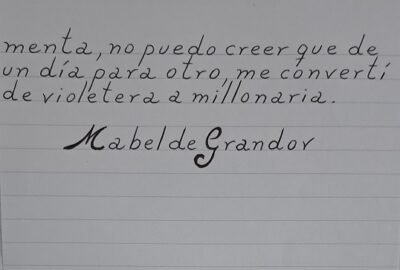 menta, no puedo creer que de
un día para otro, me convertí
de violetera a millonaria.
Mabel de Grandov